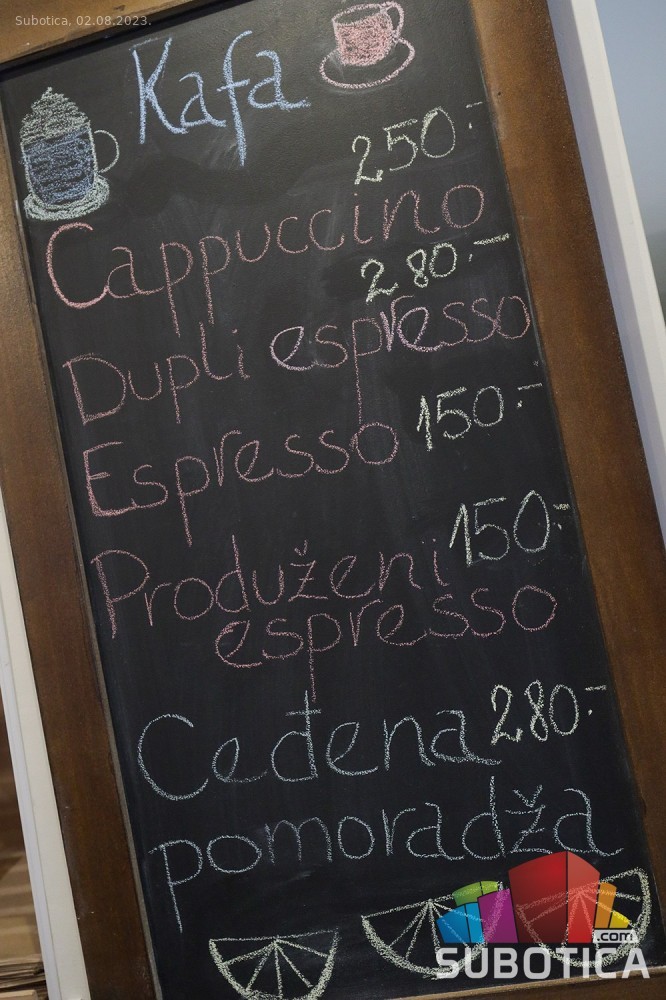 Subotica, 02.08.2023.
Kafa
250.-
Cappuccino
280.-
Dupli espresso
Espresso 150.-
150.-
Produženi
espresso
Ceđena 280.-
pomoradža
.com
SUBOTICA